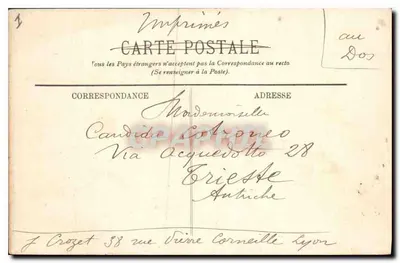 1
Imprimés
CARTE POSTALE
au
Dos
Tous les Pays étrangers n'acceptent pas la Correspondance au recto
(Se renseigner à la Poste).
CORRESPONDANCE ADRESSE
Mademoiselle
Candida Cotroneo
Via Acquedotto 28
Trieste
Autriche
J Crozet 38 rue Pierre Corneille Lyon